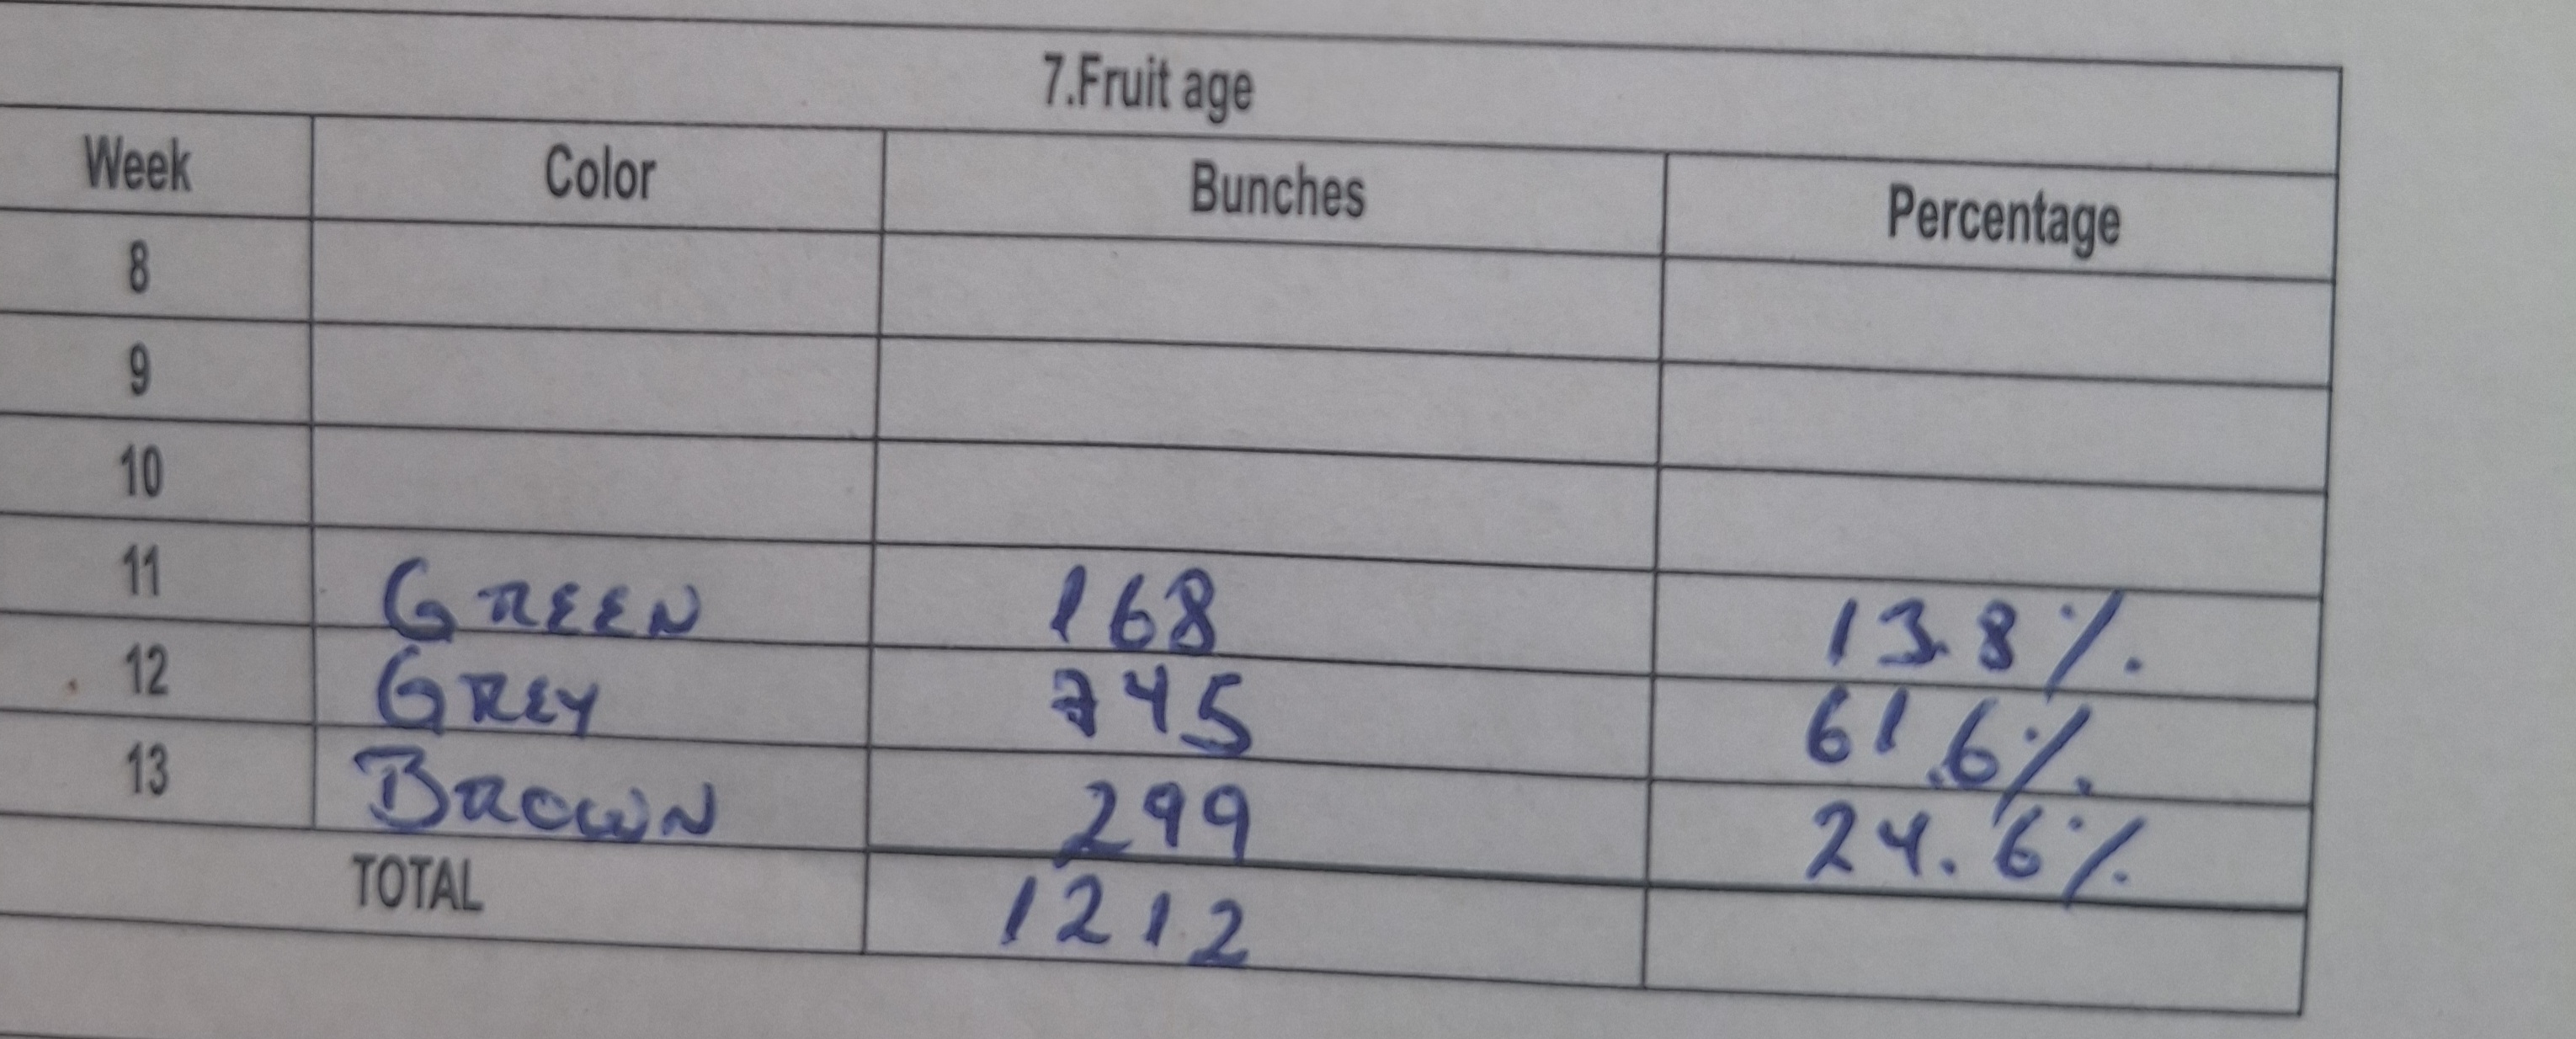 7.Fruit age
Week Color Bunches Percentage
8
9
10
11 GREEN 168 13.8%
12 GREY 745 61.6%
13 BROWN 299 24.6%
TOTAL 1212